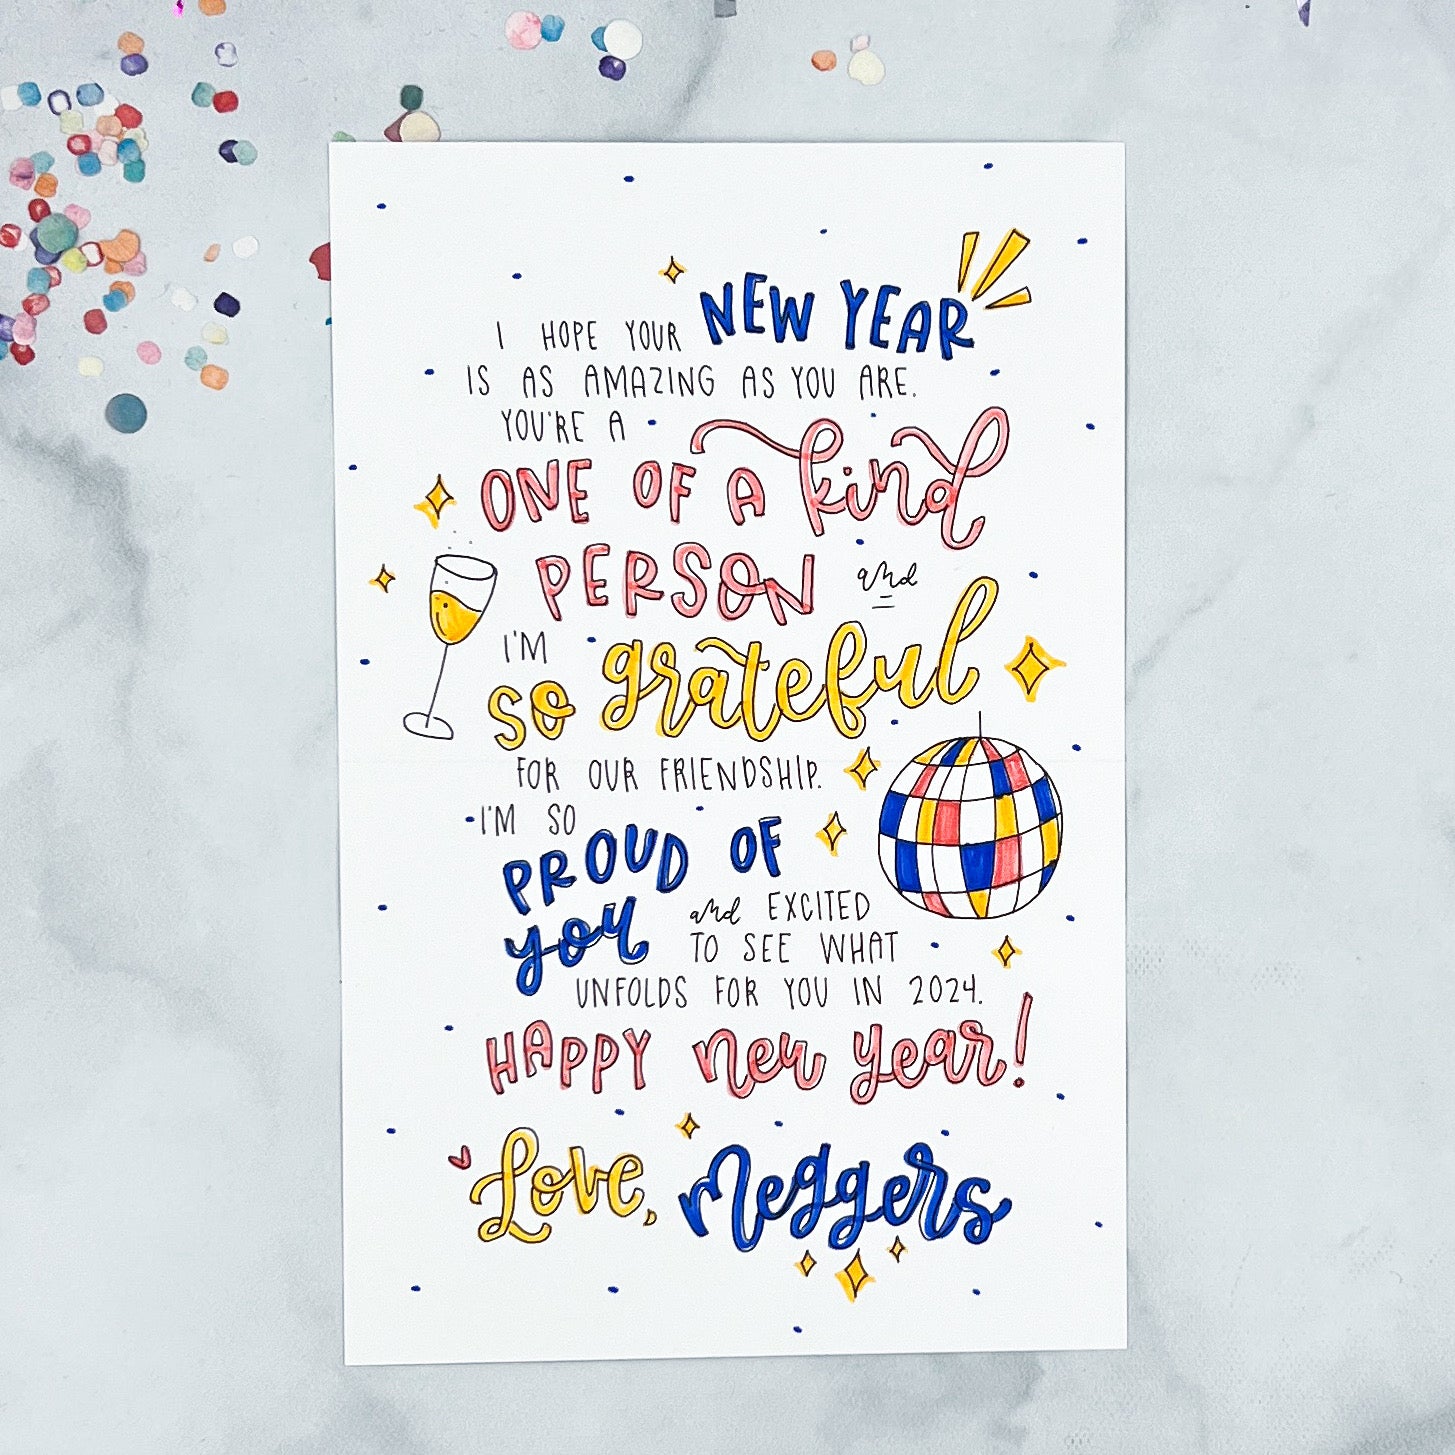 I HOPE YOUR NEW YEAR
IS AS AMAZING AS YOU ARE.
YOU'RE A
ONE OF A kind
PERSON and
I'M
SO grateful
FOR OUR FRIENDSHIP.
I'M SO
PROUD OF
you and EXCITED
TO SEE WHAT
UNFOLDS FOR YOU IN 2024.
HAPPY new year!
Love, Meggers